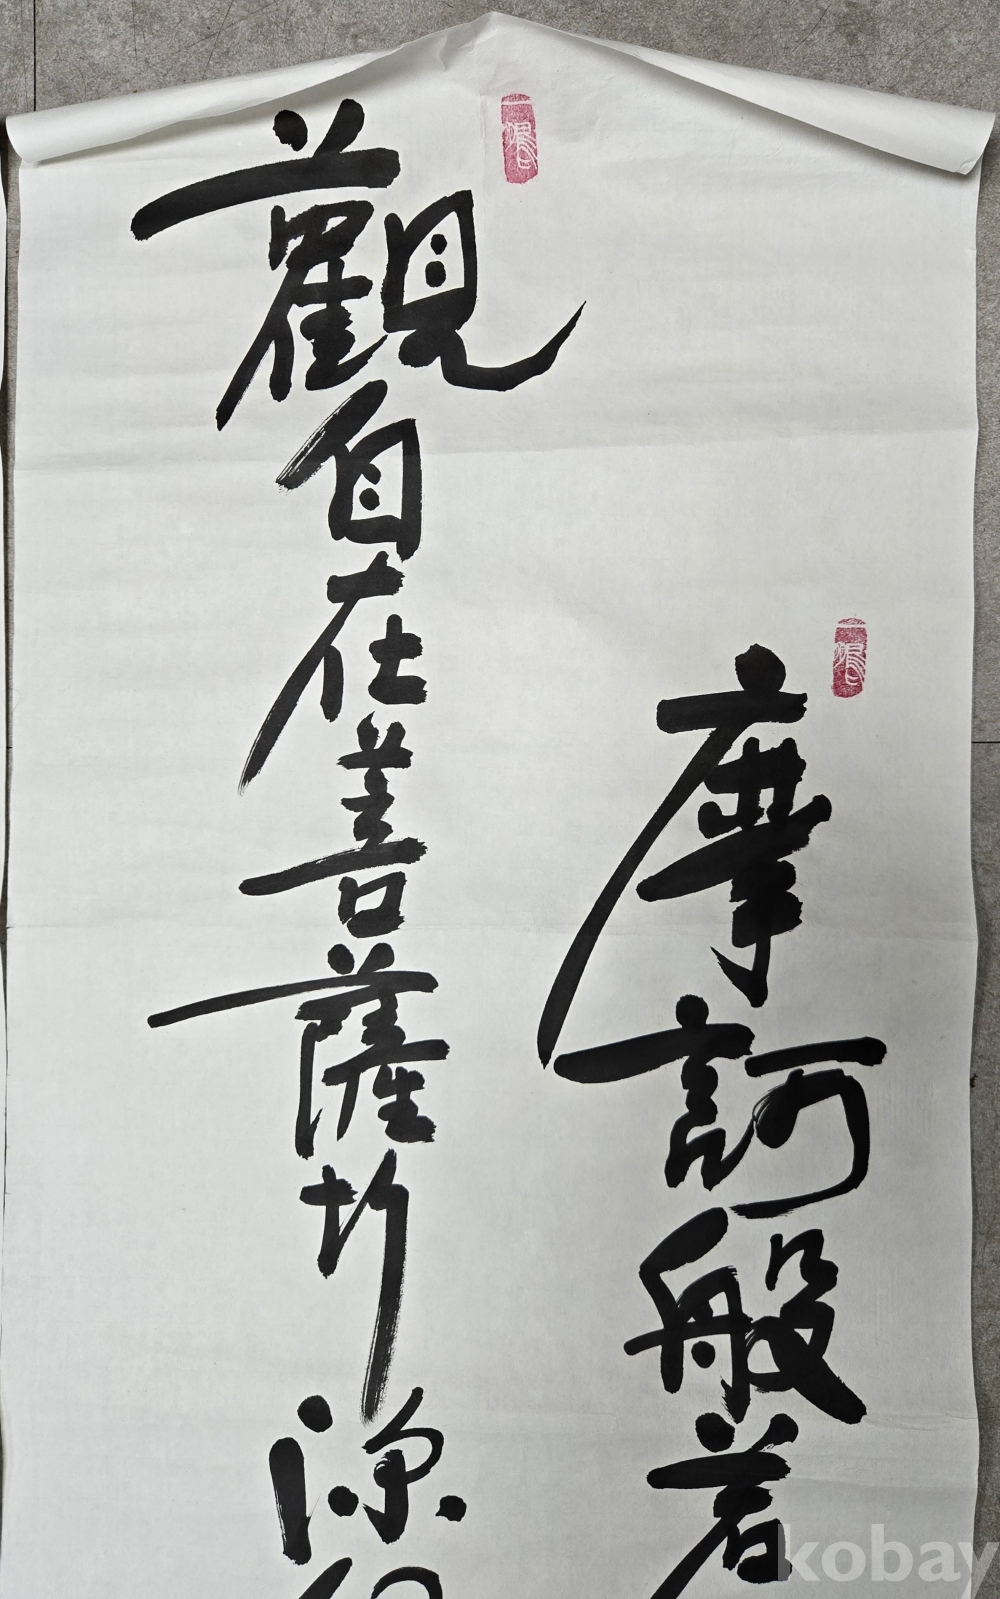 摩訶般若
觀自在菩薩行深
kobay